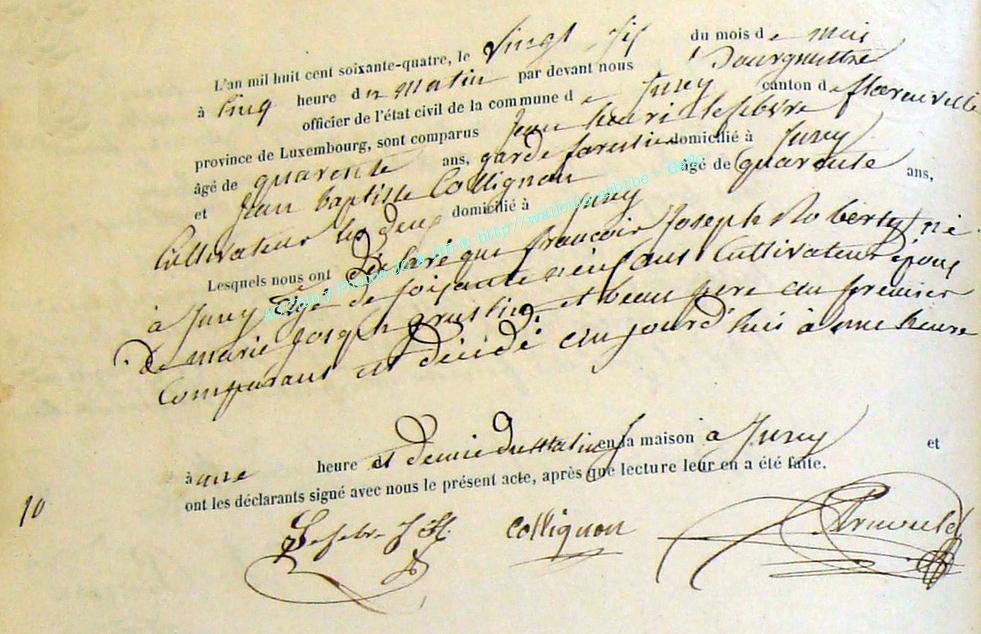 L'an mil huit cent soixante-quatre, le vingt six du mois de mai
à cinq heure du matin par devant nous Bourgmestre
officier de l'état civil de la commune de Juny canton de florenville
province de Luxembourg, sont comparus Jean henri lefebvre
âgé de quarente ans, garde forestier domicilié à Juny
et Jean baptiste Collignon âgé de quarante ans,
Cultivateur les deux domicilié à Juny
Lesquels nous ont Déclaré que francois Joseph Roberty né
à Juny age de soisante neuf ans Cultivateur époux
De marie Joseph et beau père au premier
Comparant est décédé aujourd'huis à une heure
à une heure et demie du Matin en la maison à Juny et
ont les déclarants signé avec nous le présent acte, après que lecture leur en a été faite.
10
Lefebvre J H. Collignon Arnould